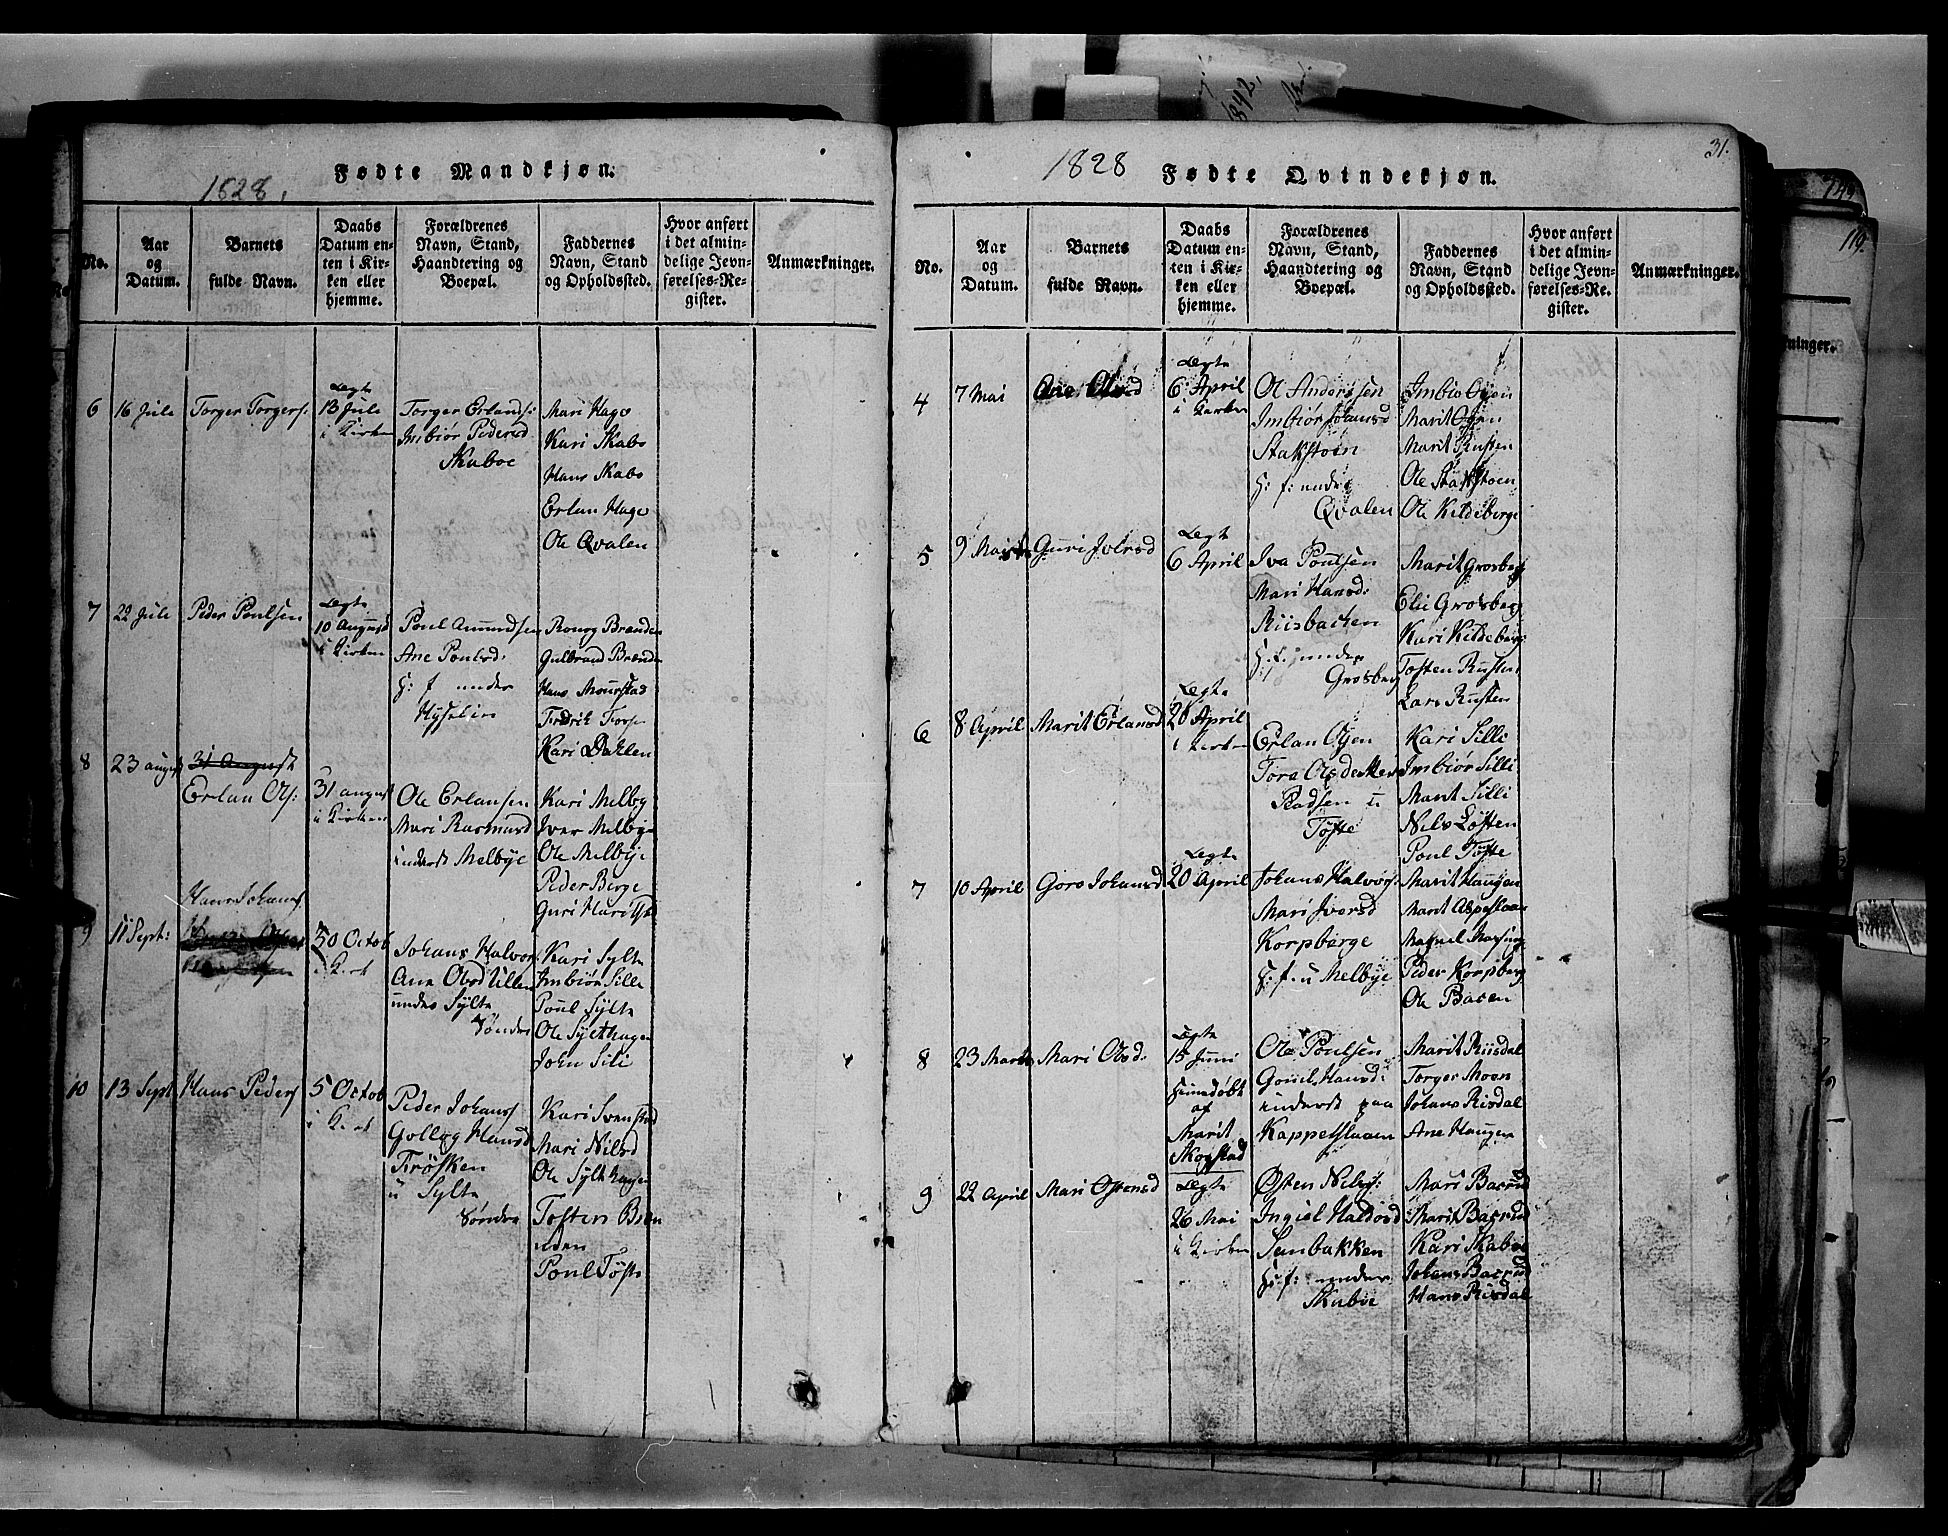 1842,
31.
149
119.
ninger.
Fødte Mandkjøn.
1828.
No.
Aar
og
Datum.
Barnets
fulde Navn.
Daabs
Datum en-
ten i Kir-
ken eller
hjemme.
Forældrenes
Navn, Stand,
Haandtering og
Boepæl.
Faddernes
Navn, Stand
og Opholdssted.
Hvor anført
i det almin-
delige Jevn-
førelses-Re-
gister.
Anmærkninger.
6
16 Jule
Torger Torgers:
Legte
13 Jule
i Kirken
Torger Erlands:
Imbiør Pedersd
Skaboe
Mari Hage
Kari Skabo
Hans Skabo
Erlan Hage
Ole Qvalen
7
22 Jule
Peder Poulsen
Legte
10 August
i Kirken
Poul Amundsen
Ane Poulsd:
H: f under
Ronog Brænden
Gulbrand Brænden
Hans Mourstad
Fredrik Forse
Kari Dahlen
8
23 august
31 August
Erlan Ols:
31 august
i Kirken
Ole Erlansen
Mari Rasmusd
inderst Melbye
Kari Melby
Iver Melbye
Ole Melbye
Peder Berge
Guri
9
11 Sept:
Hans Johans
5 Octob
i Kirk
Johans Halvors
Ane Olsd Ullen
under Sylte
Søndre
Kari Sylte
Imbiør Sille
Poul Sylte
Ole Sylthagen
John Sili
10
13 Sept
Hans Peders
5 Octob
i Kirk
Peder Johans
Gollog Hansd
Trøsken
u Sylte
Søndre
Kari Svenstad
Mari Nilsd
Ole Sylthagen
Tosten Bræn
nden
Poul Tøfte
1828
Fødte Qvindekjøn.
No.
Aar
og
Datum.
Barnets
fulde Navn.
Daabs
Datum en-
ten i Kir-
ken eller
hjemme.
Forældrenes
Navn, Stand,
Haandtering og
Boepæl.
Faddernes
Navn, Stand
og Opholdssted.
Hvor anført
i det almin-
delige Jevn-
førelses-Re-
gister.
Anmærkninger.
4
7 Mai
Ane Olsd
Legte
6 April
i Kirken
Ol Anderssen
Imbiør Johansd
Stakstoen
H: f: under
Qvalen
Imbiø Øyen
Marit Øyen
Marit Rusten
Ole Stakstoen
Ole Kildeberge
5
9 Marts
Guri Iversd
Legte
6 April
Iva Poulsen
Mari Hansd:
Riisbacken
H: f: under
Grosberg
Marit Grosberg
Elie Grosberg
Kari Kildeberg
Tosten Rusten
Lars Rusten
6
8 April
Marit Erlansd
Legte
20 April
i Kirken
Erlan Øyen
Tora Olsdatter
Stadsen u
Tøfte
Kari Silli
Imbiør Silli
Marit Silli
Nils Løften
Poul Tøfte
7
10 April
Goro Johansd
Legte
20 April
Johans Halvors:
Mari Iversd
Korpberge
H: f: u Melbye
Marit Haugen
Marit Aspeslaan
Peder Korpberg
Ole Baesen
8
23 Marts
Mari Olsd:
Legte
15 Juni
Hiemedøbt
af
Marit
Skogstad
Ole Poulsen
Gouel Hansd:
inderst paa
Kappelslaaen
Marit Riisdal
Torger Moen
Johans Risdal
Ane Haugen
9
22 April
Mari Østensd
Legte
26 Mai
i Kirken
Østen Nils:
Ingiel Haldosd
Sanbakken
H: f: under
Skaboe
Mari Baerud
Marit Baerud
Kari Skaboe
Johans Baerud
Hans Risdal